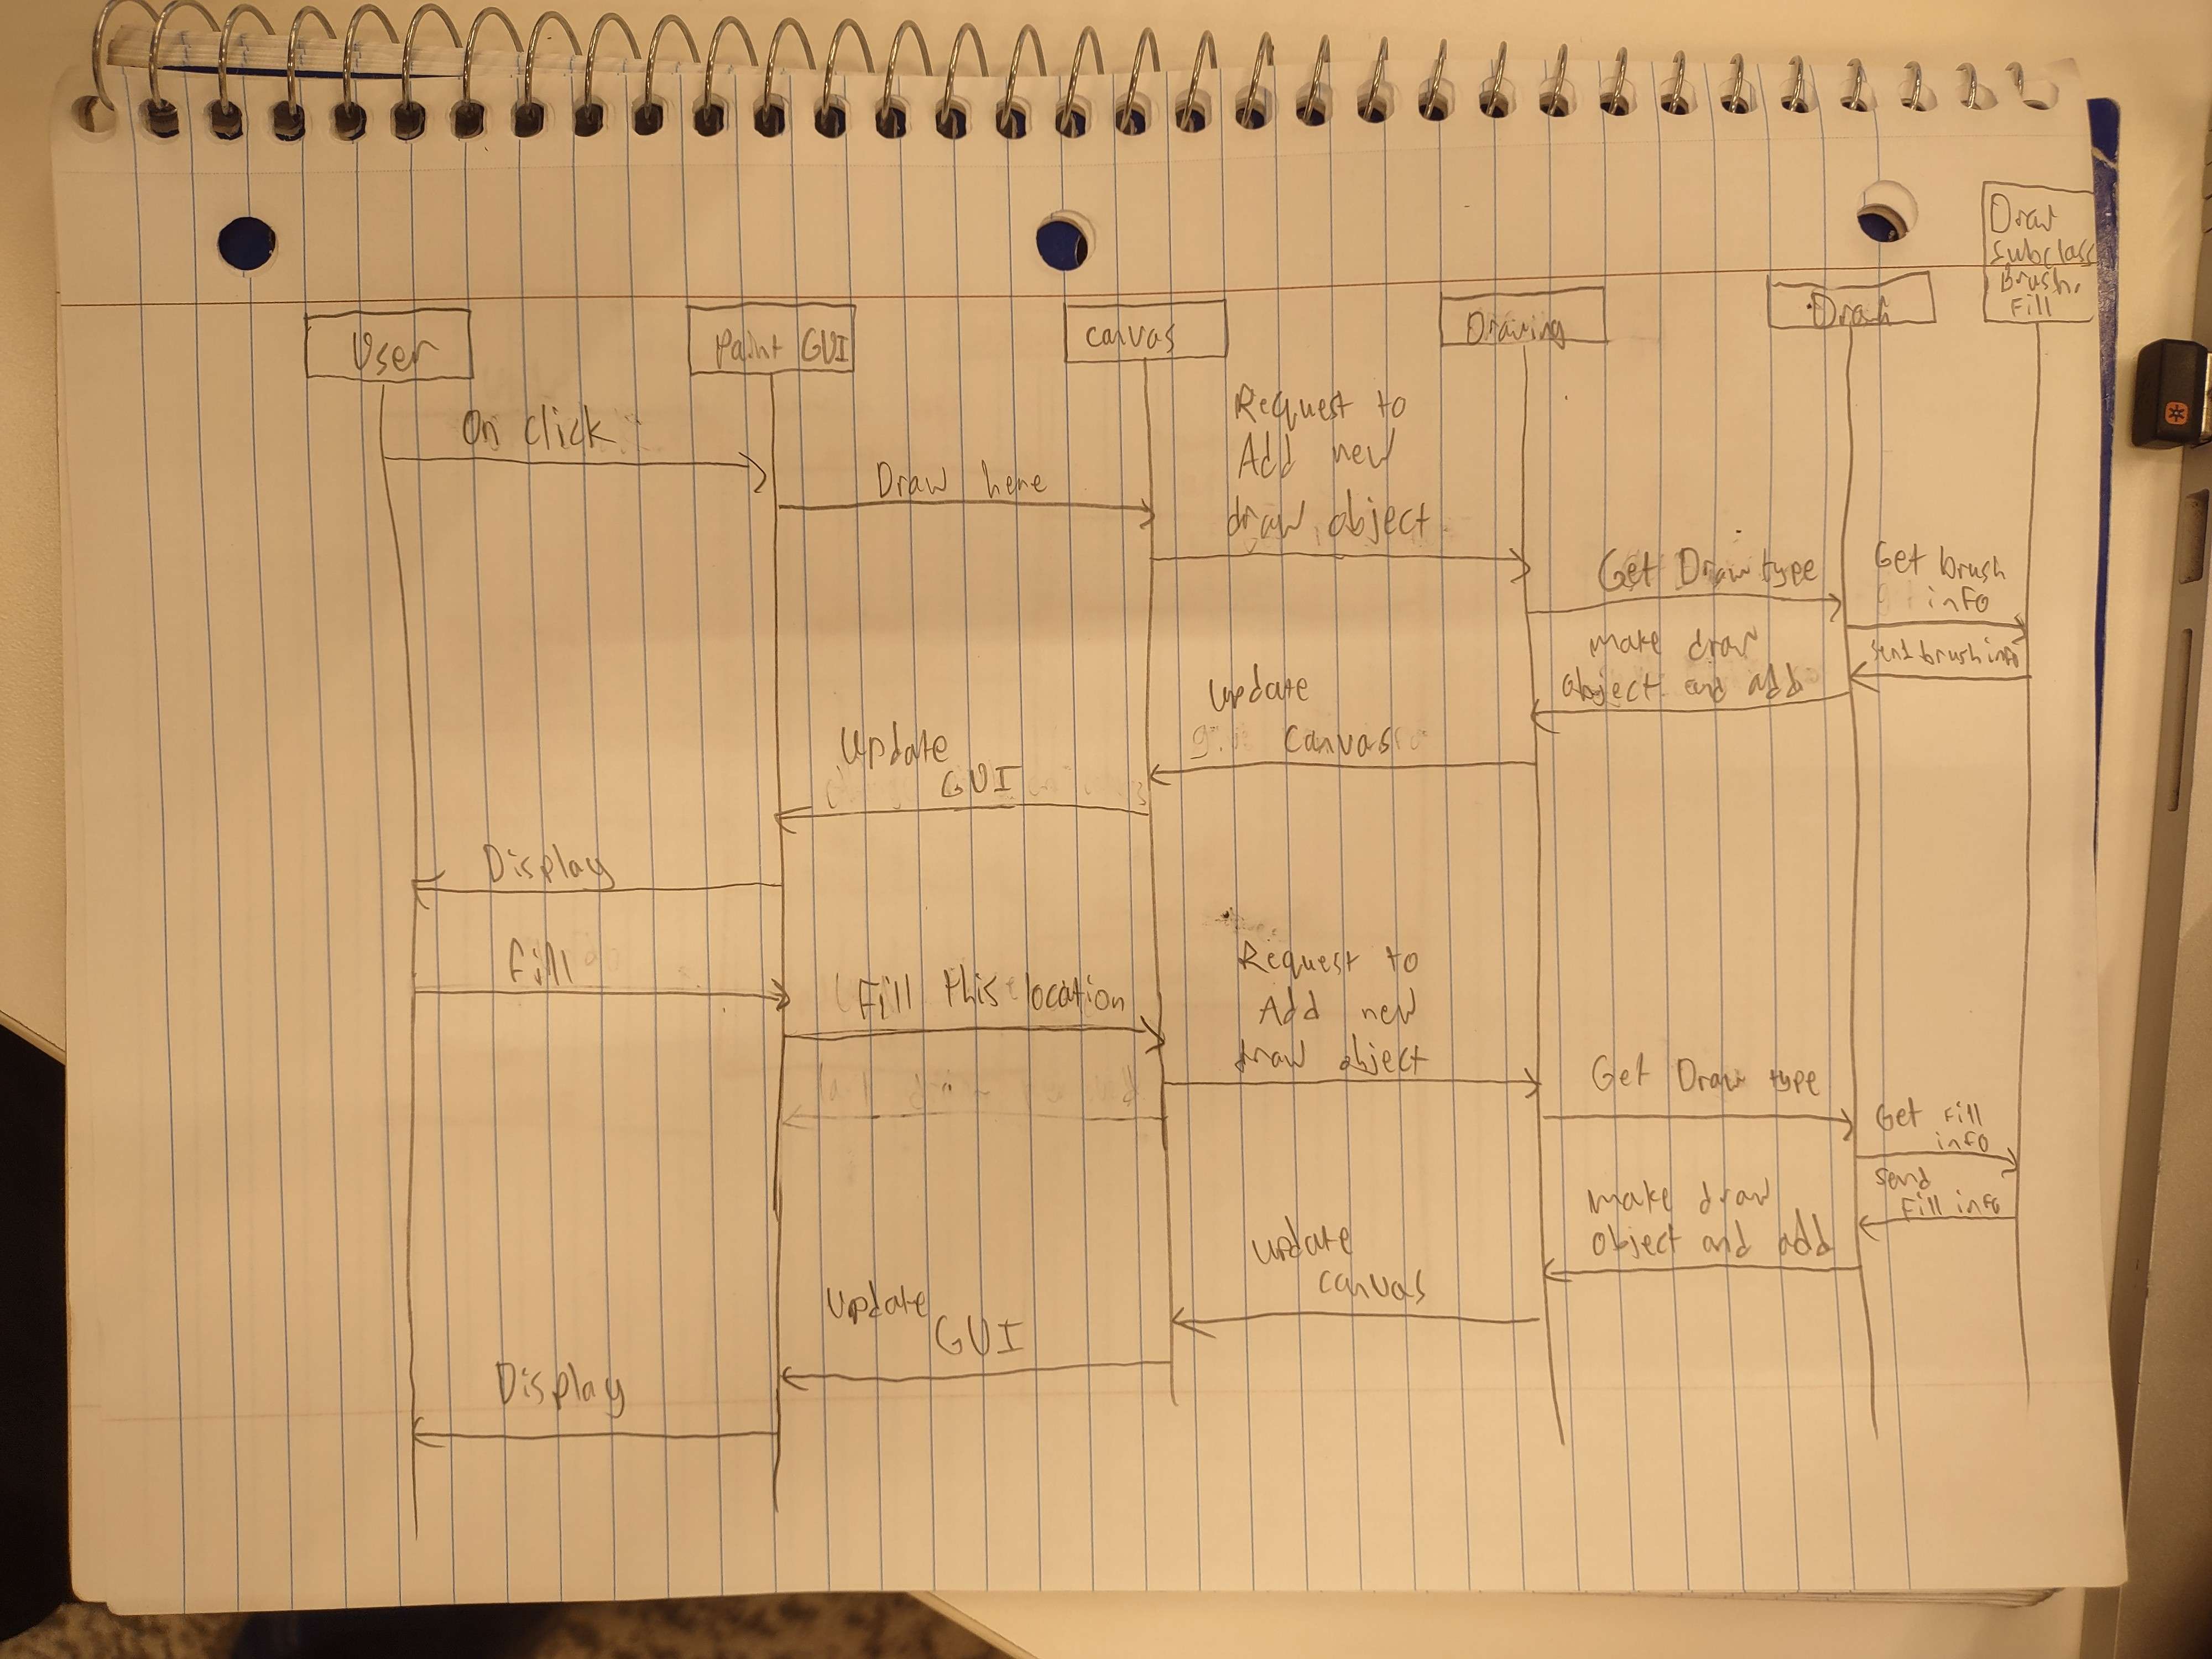 Draw
subclass
Brush,
Fill
User
Paint GUI
canvas
Drawing
Draw
On click
Draw here
Request to
Add new
draw object
Get Draw type
Get brush
info
send brush info
make draw
object and add
update
canvas
update
GUI
Display
fill
Fill this location
Request to
Add new
draw object
Get Draw type
Get Fill
info
send
Fill info
make draw
object and add
update
canvas
update
GUI
Display